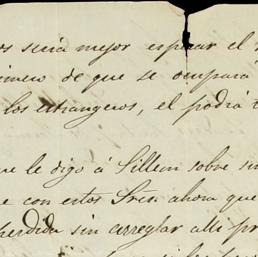 será mejor esperar el
de que se ocupará
los estrangeros, el podrá
le digo á Sillem sobre su
e con estos Sres. ahora que
perdida sin arreglar alli pr